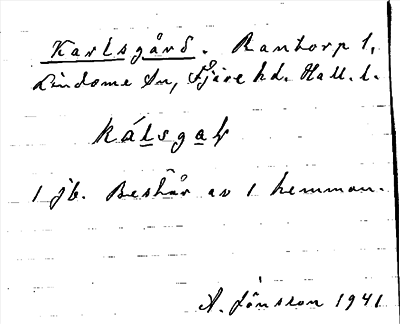 Karlsgård. Rantorp 1,
Lindome sn, Fjäre hd. Hall. l.
kálsgaḷ
1 jb. Består av 1 hemman.
A. Jönsson 1941